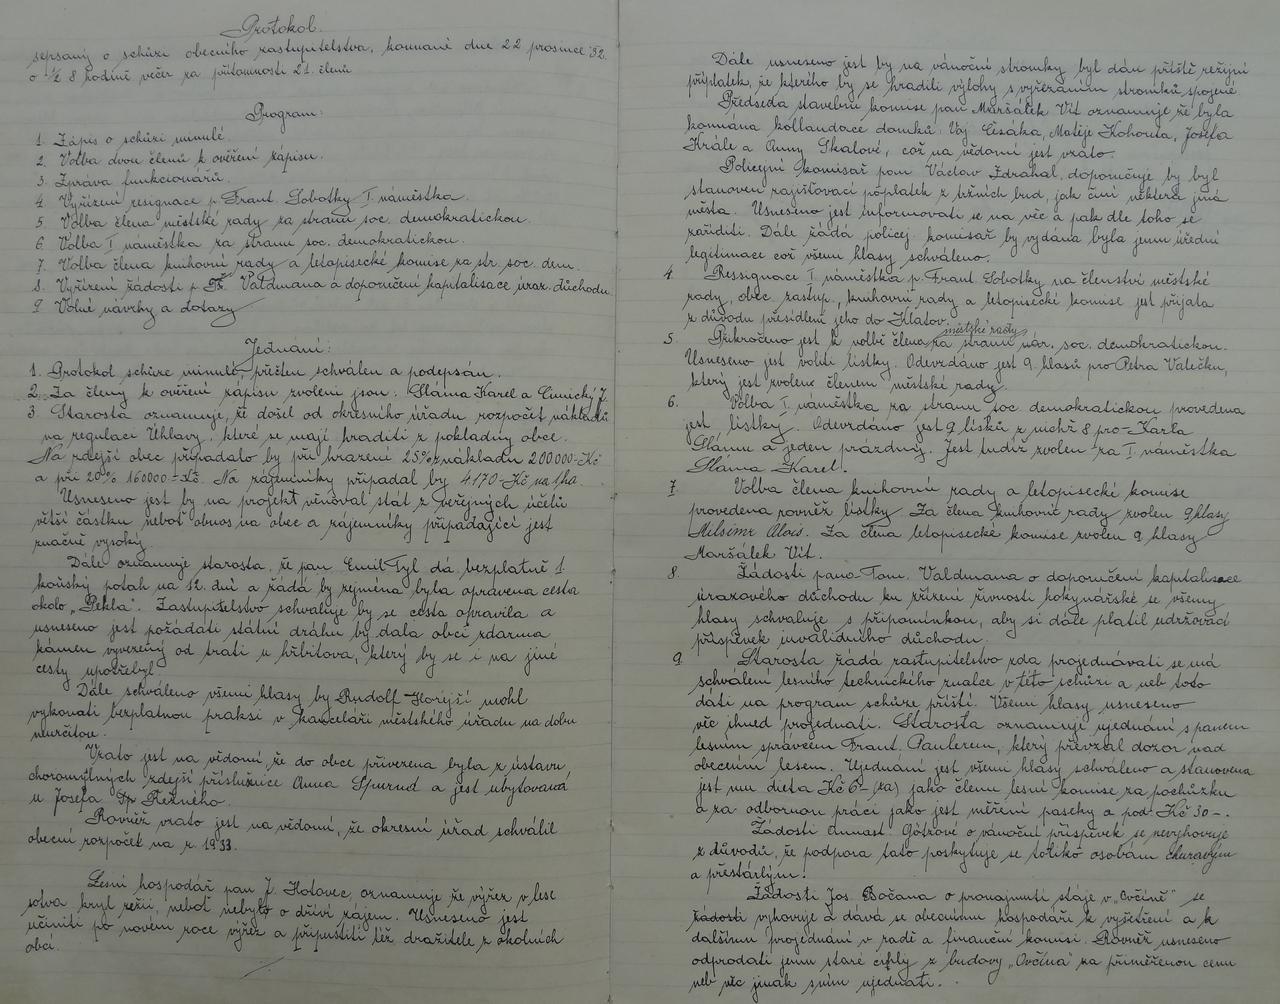 Protokol.
sepsaný o schůzi obecního zastupitelstva, konané dne 22 prosince '32.
o ½ 8 hodině večer za přítomnosti 21. členů
Program:
1. Zápis o schůzi minulé.
2. Volba dvou členů k ověření zápisu.
3. Zpráva funkcionářů.
4 Vyřízení resignace p Frant. Sobotky I. náměstka.
5 Volba člena městské rady za stranu soc. demokratickou.
6 Volba I náměstka za stranu soc. demokratickou.
7. Volba člena knihovní rady a letopisecké komise za str. soc. dem.
8. Vyřízení žádosti p Valdmana o doporučení kapitalisace úraz. důchodu
9 Volné návrhy a dotazy
Jednání:
1. Protokol schůze minulé, přečten schválen a podepsán.
2. Za členy k ověření zápisu zvoleni jsou: Sláma Karel a Cinický J.
3. Starosta oznamuje, že došel od okresního úřadu rozpočet nákladů
na regulaci Úhlavy, které se mají hraditi z pokladny obce.
Na zdejší obec připadalo by při hrazení 25% nákladu 200.000 Kč
a při 20% 160000 Kč. Na zájemníky připadal by 4.170 Kč na 1 ha.
Usneseno jest by na projekt věnoval stát z veřejných účelů
větší částku neboť obnos na obce a zájemníky připadající jest
značně vysoký.
Dále oznamuje starosta, že pan Emil Tyl dá bezplatně 1
koňský potah na 12. dní a žádá by zejména byla opravena cesta
okolo „Pekla". Zastupitelstvo schvaluje by se cesta opravila a
usneseno jest požádati státní dráhu by dala obci zdarma
kámen vyvezený od trati u hřbitova, který by se i na jiné
cesty upotřebyl.
Dále schváleno všemi hlasy by Rudolf Hořejší mohl
vykonati bezplatnou praksi v kanceláři městského úřadu na dobu
neurčitou.
Vzato jest na vědomí, že do obce přivezena byla z ústavu
choromyslných zdejší příslušnice Anna Spurná a jest ubytovaná
u Josefa Řezného.
Rovněž vzato jest na vědomí, že okresní úřad schválil
obecní rozpočet na r. 1933.
Lesní hospodář pan J. Kotavec oznamuje že výřez v lese
sotva kryl režii, neboť nebylo o dříví zájem. Usneseno jest
učiniti po novém roce výřez a připustiti též dražitele z okolních
obcí.
Dále usneseno jest by na vánoční stromky byl dán příště režijní
příplatek, ze kterého by se hradili výlohy s vyřezáním stromků spojené
Předseda stavební komise pan Maršálek Vít oznamuje že byla
konána kollaudace domků: Voj Cisáka, Matěje Kohouta, Josefa
Krále a Anny Skalové, což na vědomí jest vzato.
Policejní komisař pan Václav Zdrahal, doporučuje by byl
stanoven zajišťovací poplatek z tržních bud, jak činí některá jiná
města. Usneseno jest informovati se na věc a pak dle toho se
zaříditi. Dále žádá policej. komisař by vydána byla jemu úřední
legitimace což všemi hlasy schváleno.
4 Ressignace I náměstka p. Frant Sobotky na členství městské
rady, obec. zastup., knihovní rady a letopisecké komise jest přijata
z důvodu přesídlení jeho do Klatov.
městské rady
5 Přikročeno jest k volbě člena za stranu nár. soc. demokratickou.
Usneseno jest voliti lístky. Odevzdáno jest 9. hlasů pro Petra Valečku,
který jest zvolen členem městské rady.
6. Volba I. náměstka za stranu soc. demokratickou provedena
jest lístky. Odevzdáno jest 9 lísků z nichž 8 pro Karla
Slámu a jeden prázdný. Jest tudíž zvolen za I. náměstka
Sláma Karel.
7 Volba člena knihovní rady a letopisecké komise
provedena rovněž lístky. Za člena knihovní rady zvolen 9 hlasy
Alois. Za člena letopisecké komise zvolen 9 hlasy
Maršálek Vít.
8. Žádosti pana Tom. Valdmana o doporučení kapitalisace
úrazového důchodu ku zřízení živnosti hokynářské se všemy
hlasy schvaluje s připomínkou, aby si dále platil udržovací
příspěvek invalidního důchodu.
9. Starosta žádá zastupitelstvo zda projednávati se má
schválení lesního technického znalce v této schůzi a neb toto
dáti na program schůze příští. Všemi hlasy usneseno
věc ihned projednati. Starosta oznamuje ujednání s panem
lesním správcem Frant. Paulerem, který převzal dozor nad
obecním lesem. Ujednání jest všemi hlasy schváleno a stanovena
jest mu dieta Kč 6- jako členu lesní komise za pochůzku
a za odbornou práci jako jest měření paseky a pod. Kč 30-.
Žádosti Götzové o vánoční příspěvek se nevyhovuje
z důvodů, že podpora tato poskytuje se toliko osobám churavým
a přestárlým.
Žádosti Jos. Bočana o pronajmutí stáje v „Ovčíně" se
žádosti vyhovuje a dává se obecnímu hospodáři k vyšetření a k
dalšímu projednání v radě a finanční komisi. Rovněž usneseno
odprodati jemu staré cihly z budovy „Ovčína" za přiměřenou cenu
neb věc jinak s ním ujednati.